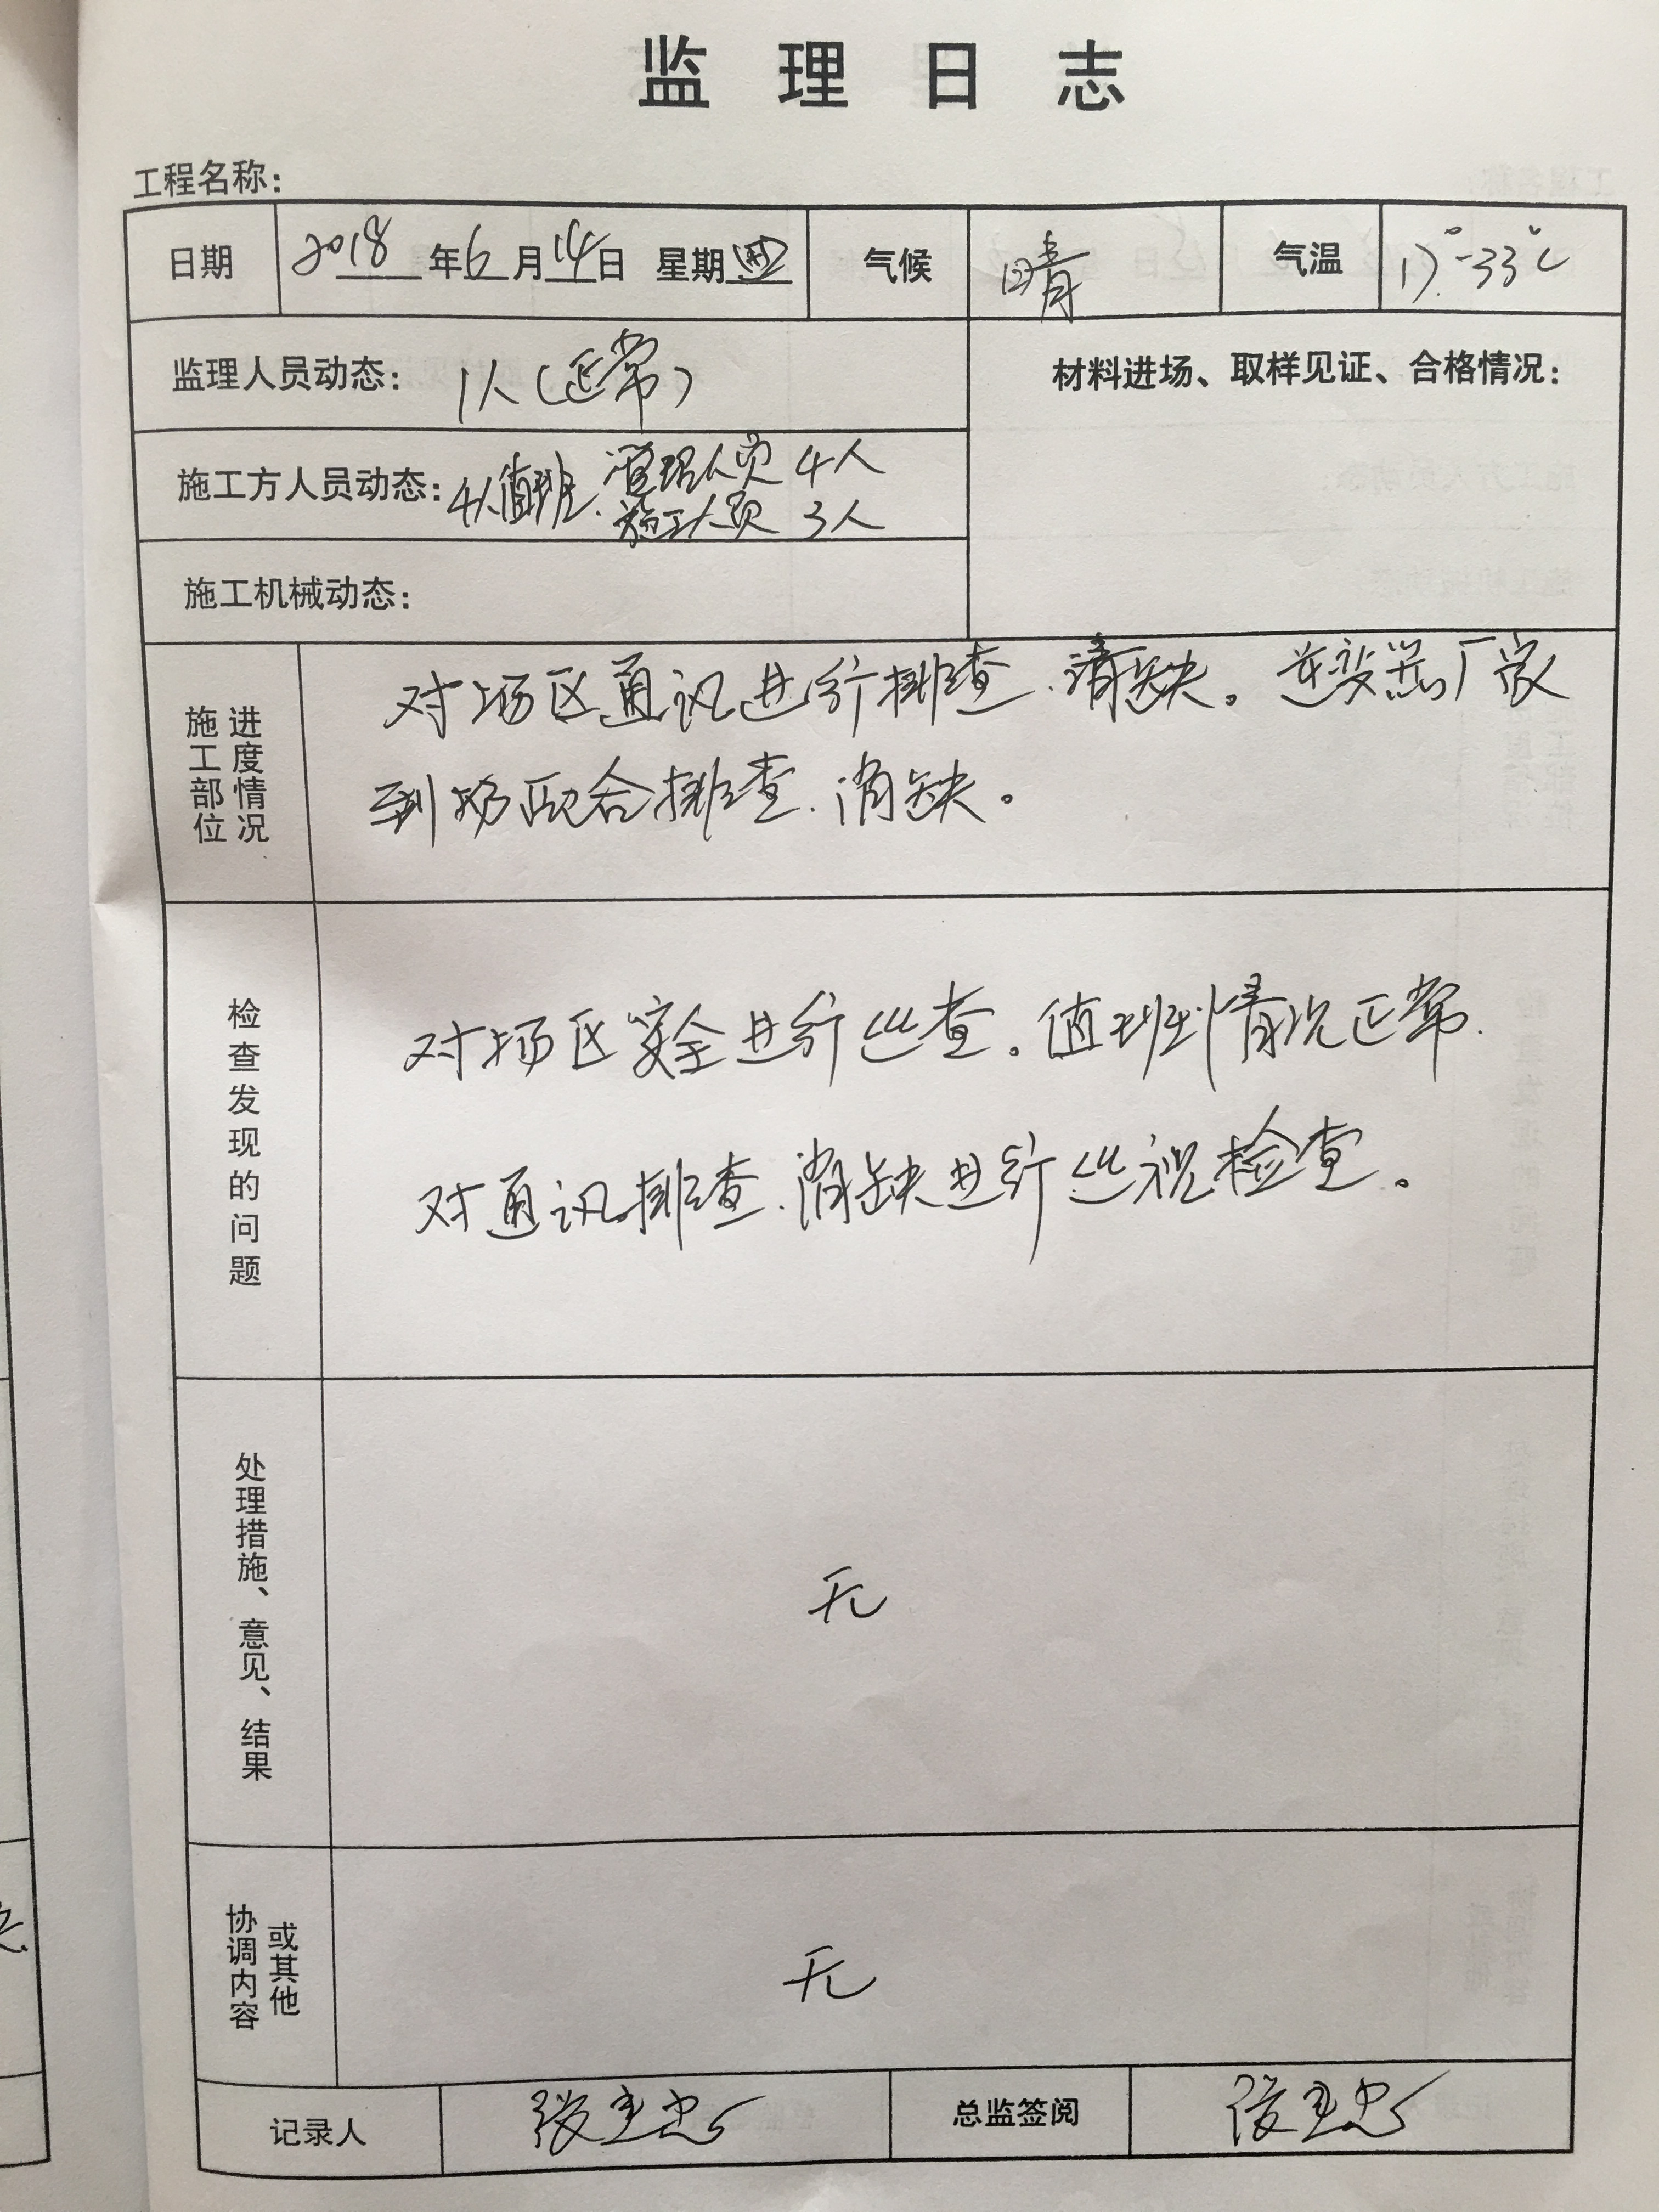 监理日志
工程名称：
日期 2018年6月14日 星期四 气候 晴 气温 17°-33℃
监理人员动态： 1人（正常） 材料进场、取样见证、合格情况：
施工方人员动态：4人值班、管理人员 4人
施工人员 3人
施工机械动态：
施工部位
进度情况
对场区通讯进行排查、清缺。逆变器厂家
到场配合排查、消缺。
检查发现的问题
对场区安全进行巡查。值班情况正常.
对通讯排查、消缺进行巡视检查。
处理措施、意见、结果
无
协调内容
或其他
无
记录人 总监签阅